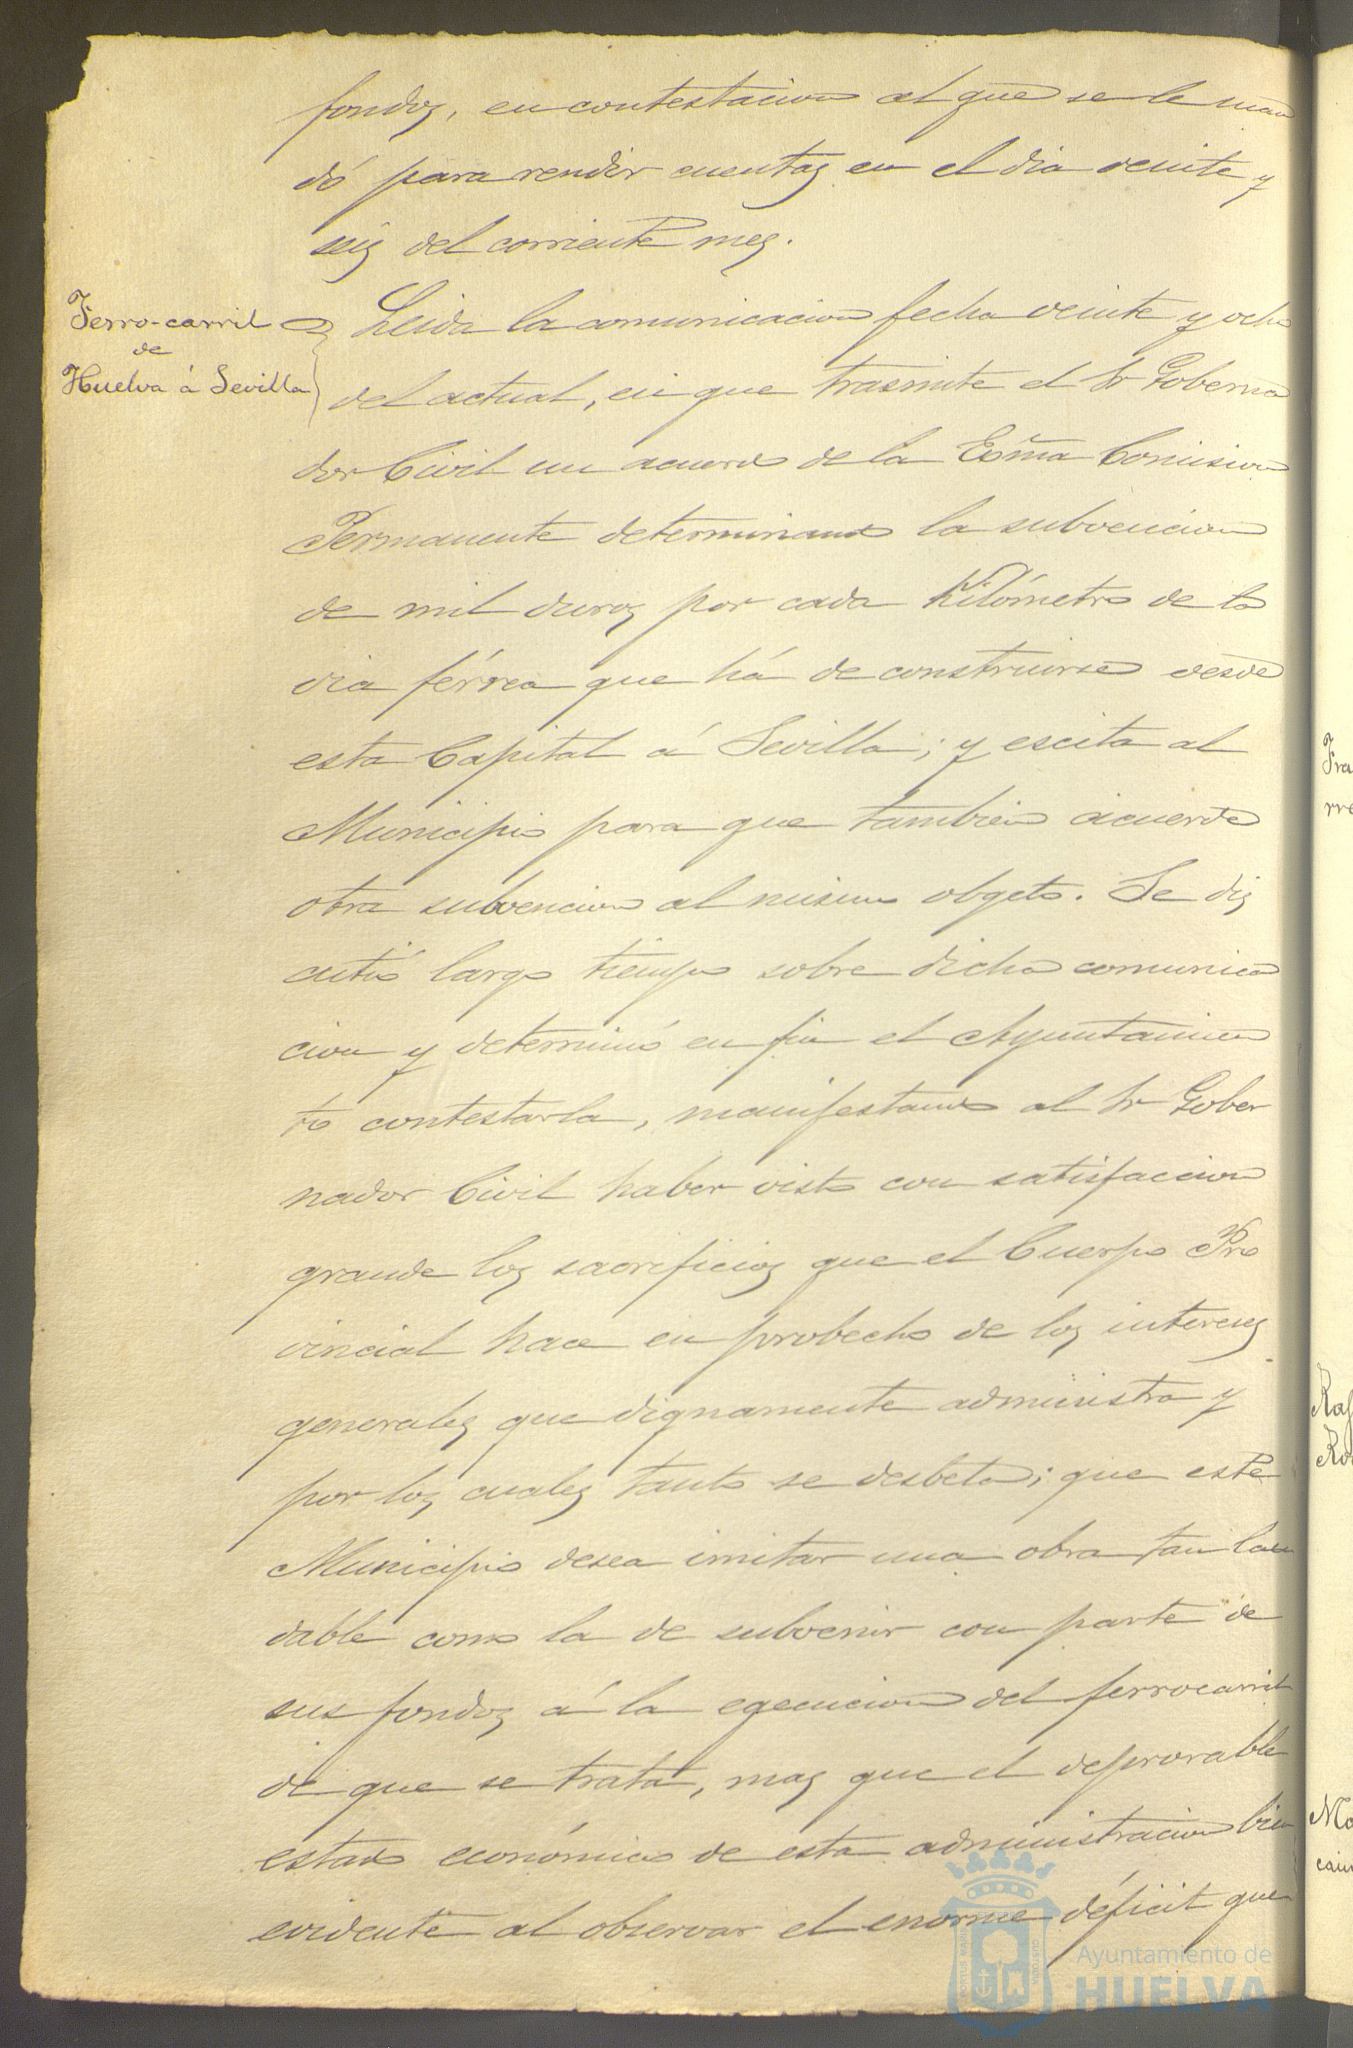 fondos, en contestacion al que se le man
dó para rendir cuentas en el dia veinte y
seis del corriente mes.
Ferro-carril
de
Huelva á Sevilla
Leida la comunicacion fecha veinte y ocho
del actual, en que trasmite el Sr Goberna
dor Civil un acuerdo de la Exma Comision
Permanente determinando la subvencion
de mil duros por cada Kilómetro de la
via férrea que há de construirse desde
esta Capital á Sevilla; y escita al
Municipio para que tambien acuerde
otra subvencion al mismo obgeto. Se dis
cutió largo tiempo sobre dicha comunica
cion y determinó en fin el Ayuntamien
to contestarla, manifestando al Sr Gober
nador Civil haber visto con satisfaccion
grande los sacrificios que el Cuerpo Pro
vincial hace en probecho de los intereses
generales que dignamente administra y
por los cuales tanto se desbela; que este
Municipio desea imitar una obra tan lau
dable como la de subvenir con parte de
sus fondos á la egecucion del ferrocarril
de que se trata, mas que el deprorable
estado económico de esta administracion bien
evidente al observar el enorme déficit que
Ayuntamiento de
HUELVA